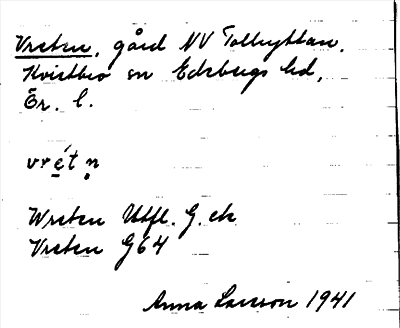 Vreten, gård NV Tolhyttan,
Kvistbro sn Edsbergs hd,
Ör. l.
vrétṇ
Wreten Utfl. G. ek
Vreten G64
Anna Larsson 1941